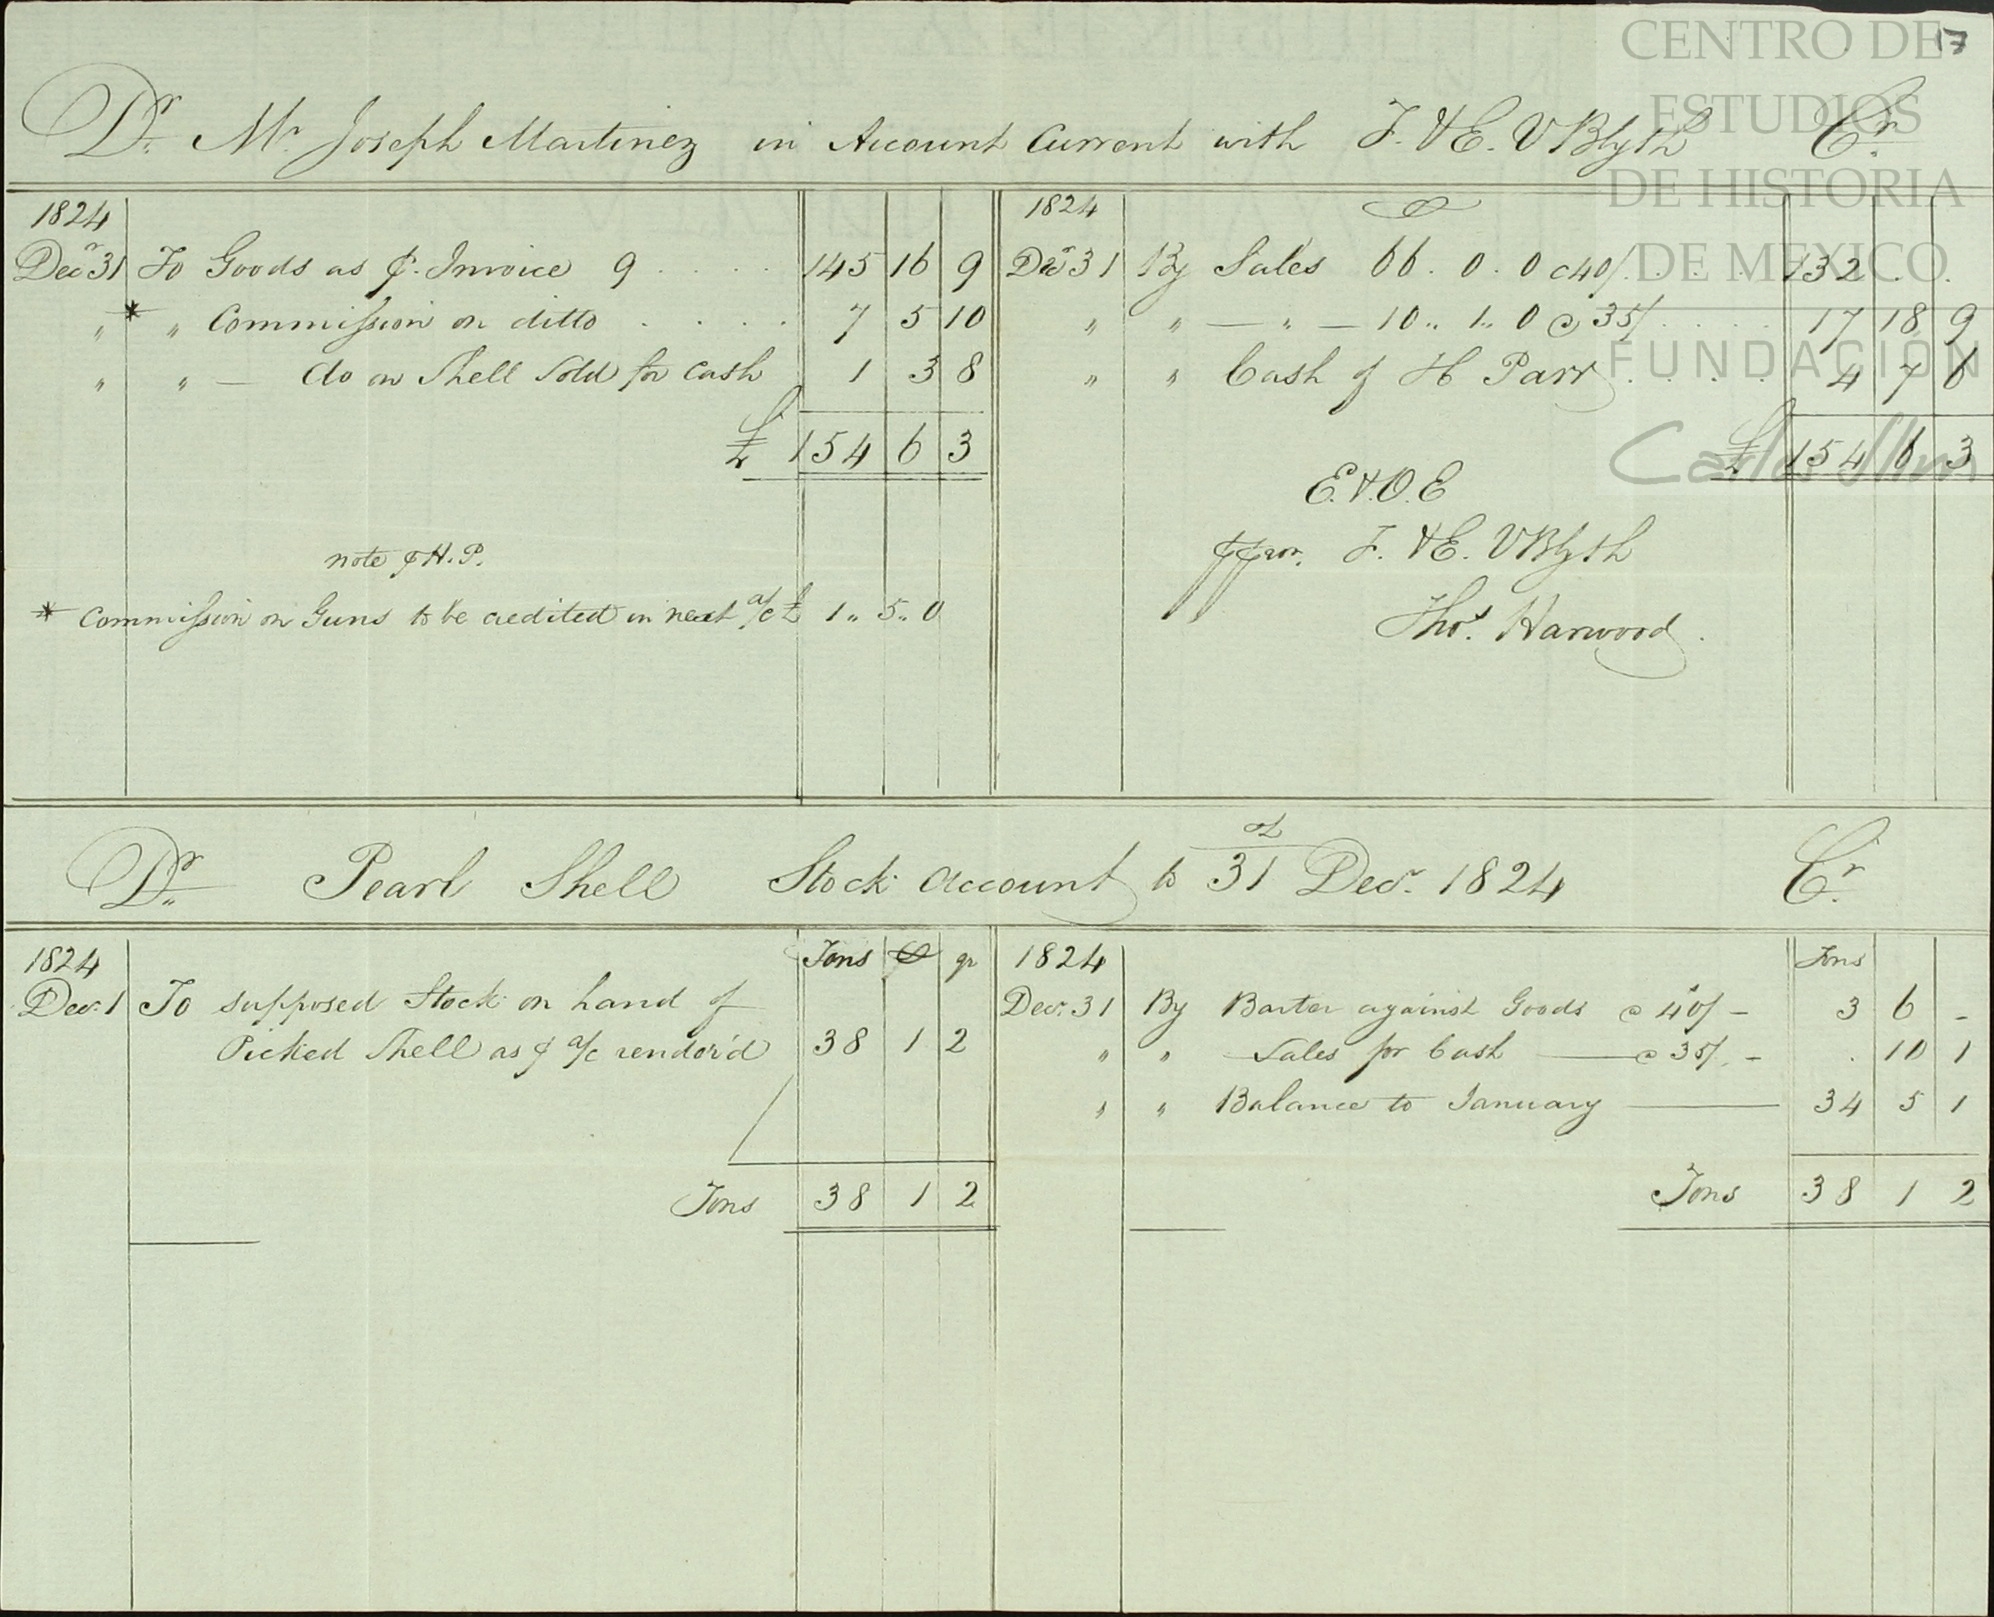 17
CENTRO DE
ESTUDIOS
DE HISTORIA
DE MÉXICO
FUNDACIÓN
Carlos Slim
Dr. Mr. Joseph Martinez in Account Current with F. & E. V Blyth Cr.
1824
Decr 31 To Goods as ⅌. Invoice 9 . . . . 145 16 9
" * " Commission on ditto . . . . 7 5 10
" " — do on Shell Sold for Cash 1 3 8
£ 154 6 3
note ⅌ H. P.
* Commission on Guns to be credited in next a/c £ 1 .. 5 .. 0
1824
Decr 31 By Sales 66 . 0 . 0 @ 40/. . . . 132 . .
" " — " — 10 .. 1 .. 0 @ 35/ . . . . 17 18 9
" " Cash of H Parr . . . . 4 7 6
£ 154 6 3
E. & O. E
⅌ pron. F. & E. V Blyth
Thos. Harwood.
Dr. Pearl Shell Stock Account to 31st Decr. 1824 Cr.
1824 Tons C qr
Decr. 1 To supposed Stock on hand of
Picked Shell as ⅌ a/c render'd 38 1 2
Tons 38 1 2
1824 Tons
Decr. 31 By Barter against Goods @ 40/ — 3 6 -
" " Sales for Cash — @ 35/. — . 10 1
" " Balance to January — 34 5 1
Tons 38 1 2